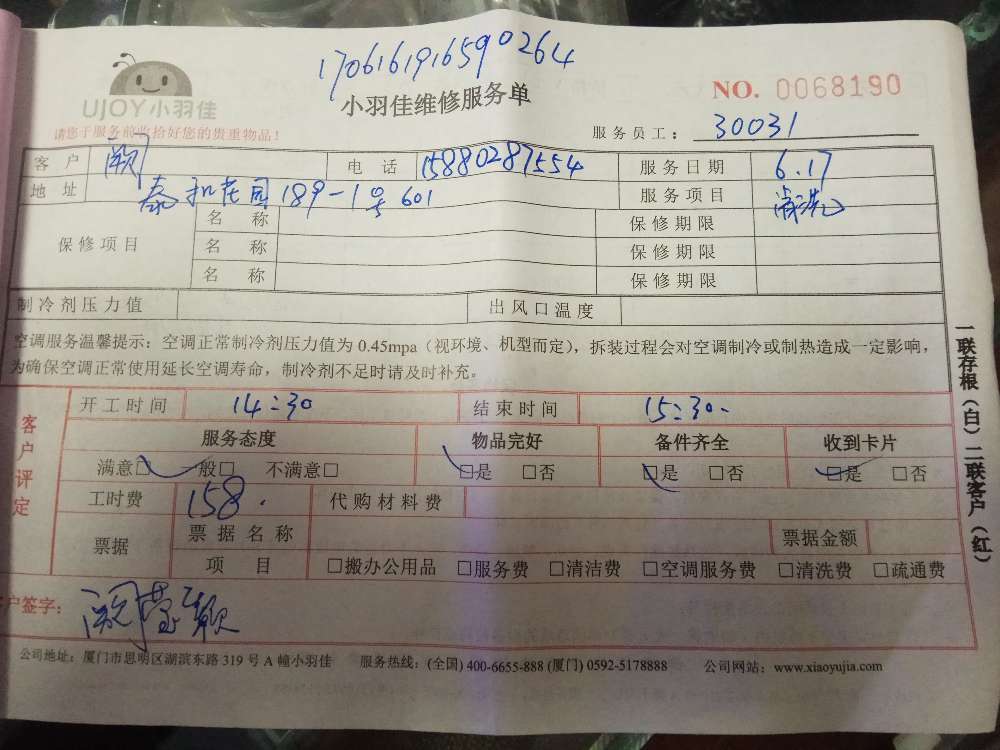 1706161916590264
UJOY小羽佳
小羽佳维修服务单
NO. 0068190
请您于服务前收拾好您的贵重物品!
服务员工: 30031
客户 阙 电话 15880287554 服务日期 6.17
地址 泰和花园189-1号601 服务项目 清洗
保修项目 名称 保修期限
名称 保修期限
名称 保修期限
制冷剂压力值 出风口温度
空调服务温馨提示: 空调正常制冷剂压力值为 0.45mpa (视环境、机型而定), 拆装过程会对空调制冷或制热造成一定影响,
为确保空调正常使用延长空调寿命, 制冷剂不足时请及时补充。
客户评定
开工时间 14:30 结束时间 15:30.
服务态度 物品完好 备件齐全 收到卡片
满意□ 一般□ 不满意□ □是 □否 □是 □否 □是 □否
工时费 158. 代购材料费
票据 票据名称 票据金额
项目 □搬办公用品 □服务费 □清洁费 □空调服务费 □清洗费 □疏通费
客户签字: 阙莹颖
公司地址: 厦门市思明区湖滨东路 319 号 A 幢小羽佳 服务热线: (全国) 400-6655-888 (厦门) 0592-5178888 公司网站: www.xiaoyujia.com
一联存根(白) 二联客户(红)